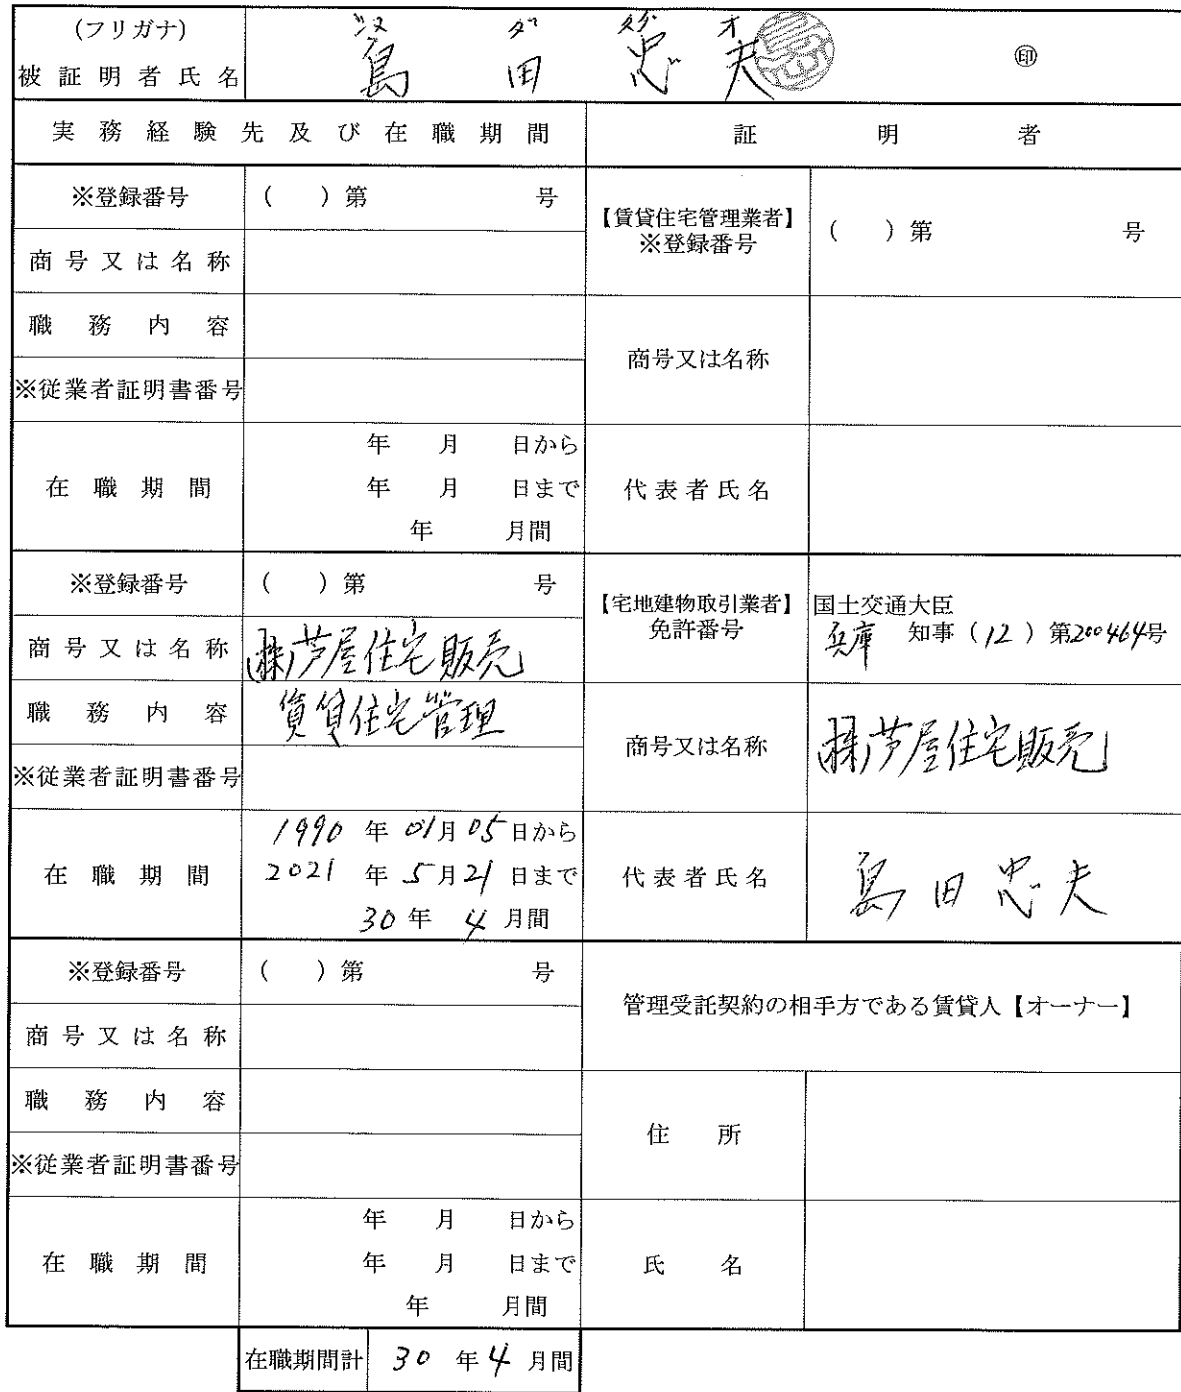 (フリガナ)
シマ ダ タダ オ
被証明者氏名
島 田 忠 夫
㊞
実務経験先及び在職期間
証明者
※登録番号
( )第 号
商号又は名称
職務内容
※従業者証明書番号
在職期間
年 月 日から
年 月 日まで
年 月間
【賃貸住宅管理業者】
※登録番号
( )第 号
商号又は名称
代表者氏名
※登録番号
( )第 号
商号又は名称
(株)芦屋住宅販売
職務内容
賃貸住宅管理
※従業者証明書番号
在職期間
1990 年 01月 05日から
2021 年 5月 21 日まで
30 年 4 月間
【宅地建物取引業者】
免許番号
国土交通大臣
兵庫 知事(12)第200464号
商号又は名称
(株)芦屋住宅販売
代表者氏名
島田忠夫
※登録番号
( )第 号
商号又は名称
職務内容
※従業者証明書番号
在職期間
年 月 日から
年 月 日まで
年 月間
管理受託契約の相手方である賃貸人【オーナー】
住所
氏名
在職期間計
30 年 4 月間